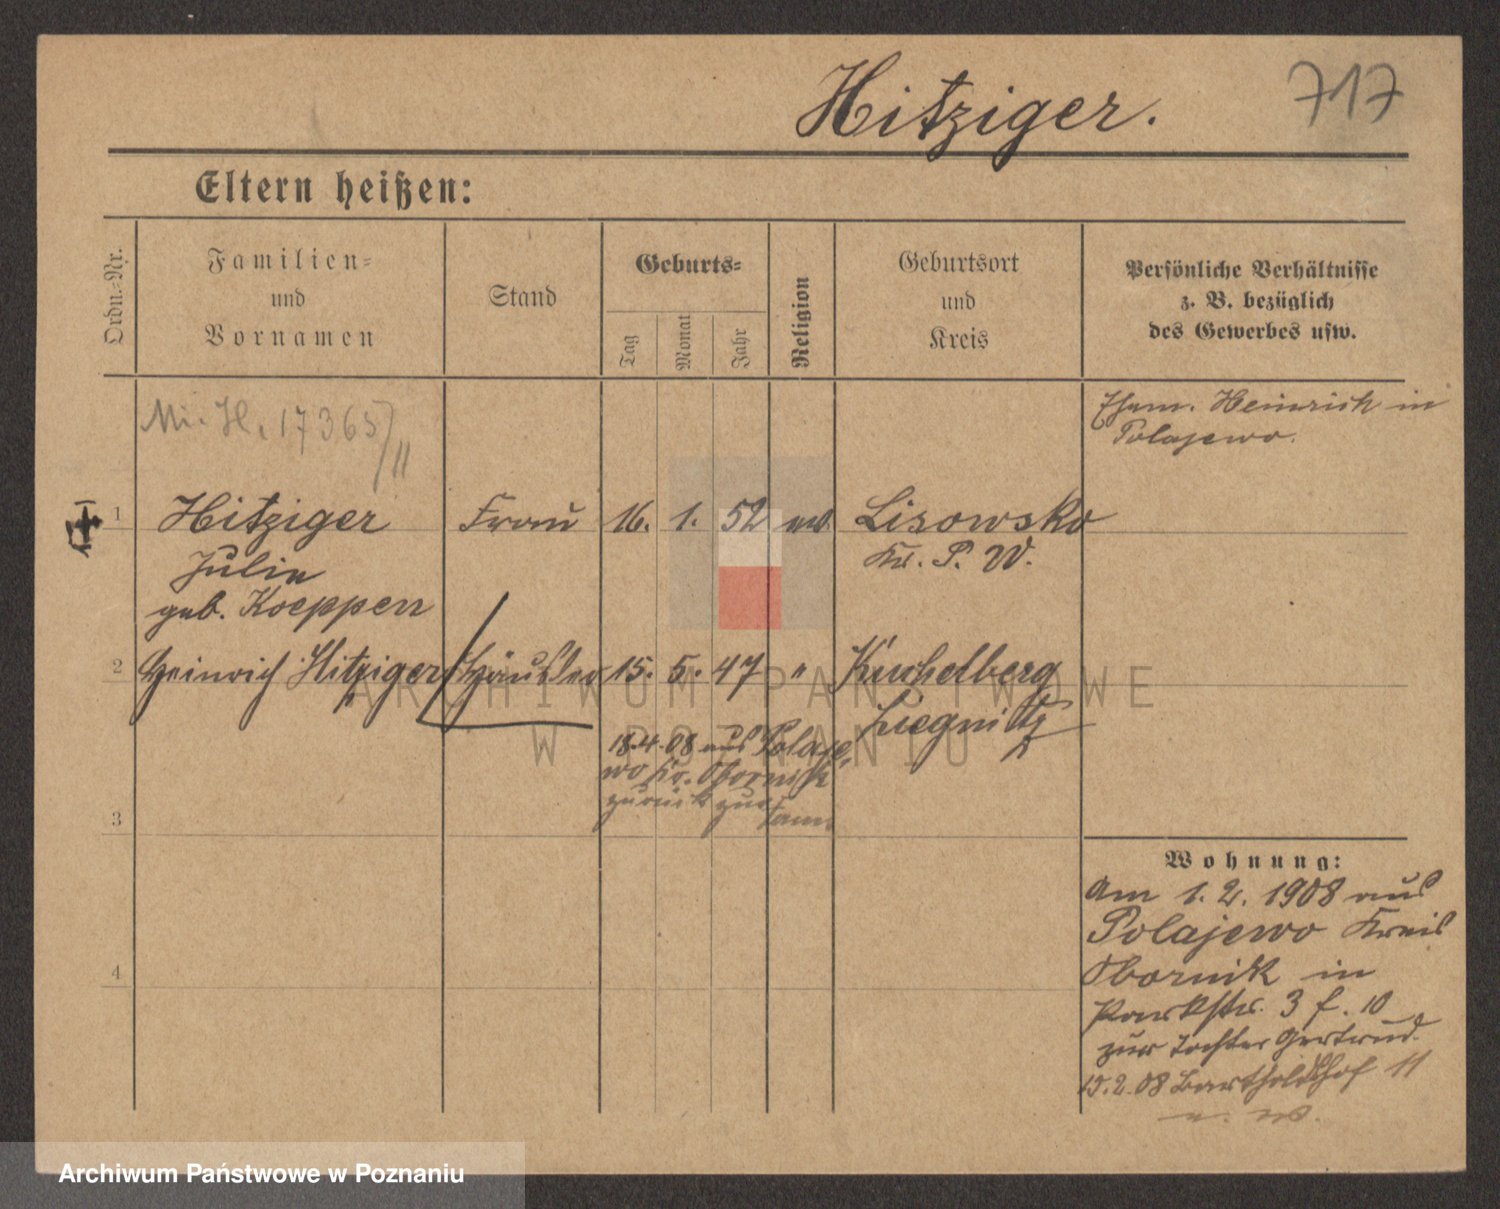 Hitziger. 717
Eltern heißen:
Ordn.-Nr.
Familien-
und
Vornamen
Stand
Geburts-
Tag
Monat
Jahr
Religion
Geburtsort
und
Kreis
Persönliche Verhältnisse
z. B. bezüglich
des Gewerbes usw.
Mi. H. 17365/11
Ehem. Heinrich in
Polajewo.
1 Hitziger Frau 16. 1. 52 ev. Lisowsko
Julie Kr. P. W.
geb. Koeppen
2 Heinrich Hitziger Häusler 15. 5. 47 " Kuchelberg
Liegnitz
18.4.08 aus Polaje-
wo Kr. Obornik
zurück zur
3
4
Wohnung:
Am 1. 2. 1908 aus
Polajewo Kreis
Obornik in
Parkstr. 3 f. 10
zur Tochter Gertrud.
15.2.08 Bartholdshof 11
ARCHIWUM PAŃSTWOWE
W POZNANIU
Archiwum Państwowe w Poznaniu